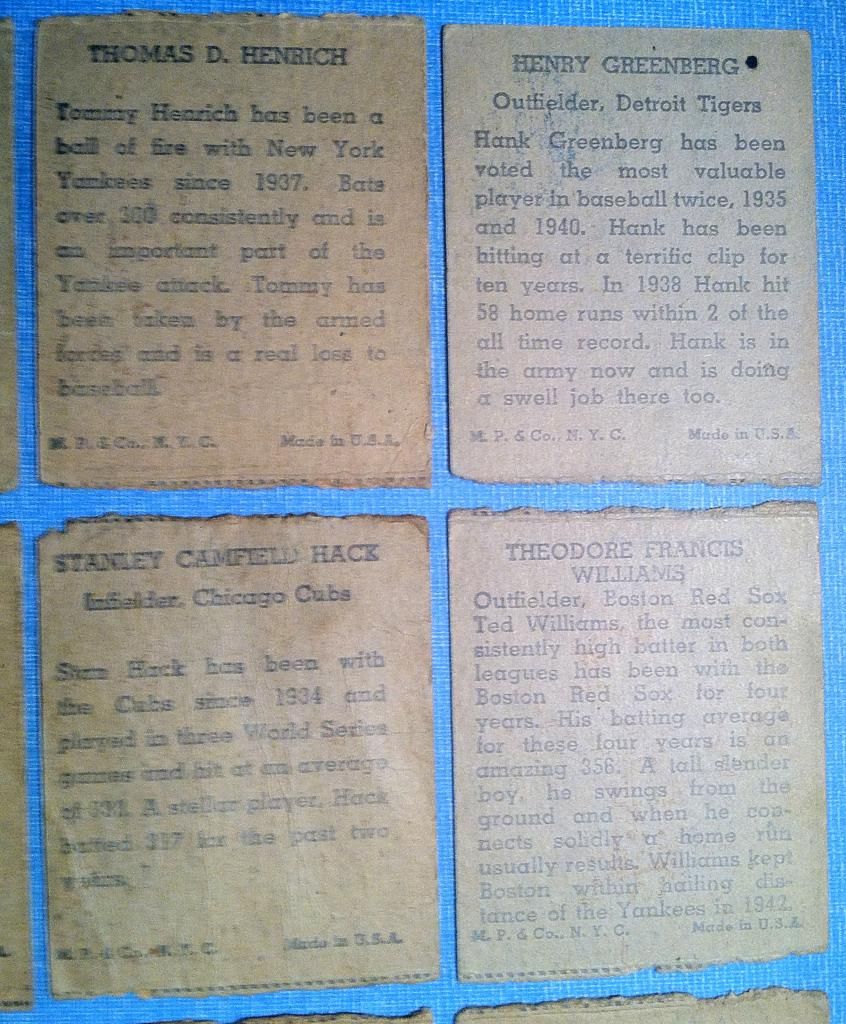 THOMAS D. HENRICH
Tommy Henrich has been a
ball of fire with New York
Yankees since 1937. Bats
over 300 consistently and is
an important part of the
Yankee attack. Tommy has
been taken by the armed
forces and is a real loss to
baseball.
M. P. & Co., N. Y. C. Made in U.S.A.
HENRY GREENBERG
Outfielder, Detroit Tigers
Hank Greenberg has been
voted the most valuable
player in baseball twice, 1935
and 1940. Hank has been
hitting at a terrific clip for
ten years. In 1938 Hank hit
58 home runs within 2 of the
all time record. Hank is in
the army now and is doing
a swell job there too.
M. P. & Co., N. Y. C. Made in U.S.A.
STANLEY CAMFIELD HACK
Infielder, Chicago Cubs
Stan Hack has been with
the Cubs since 1934 and
played in three World Series
games and hit at an average
of A stellar player, Hack
batted 317 for the past two
M. P. & Co., N. Y. C. Made in U.S.A.
THEODORE FRANCIS
WILLIAMS
Outfielder, Boston Red Sox
Ted Williams, the most con-
sistently high batter in both
leagues has been with the
Boston Red Sox for four
years. His batting average
for these four years is an
amazing 356. A tall slender
boy, he swings from the
ground and when he con-
nects solidly a home run
usually results. Williams kept
Boston within hailing dis-
tance of the Yankees in 1942.
M. P. & Co., N. Y. C. Made in U.S.A.